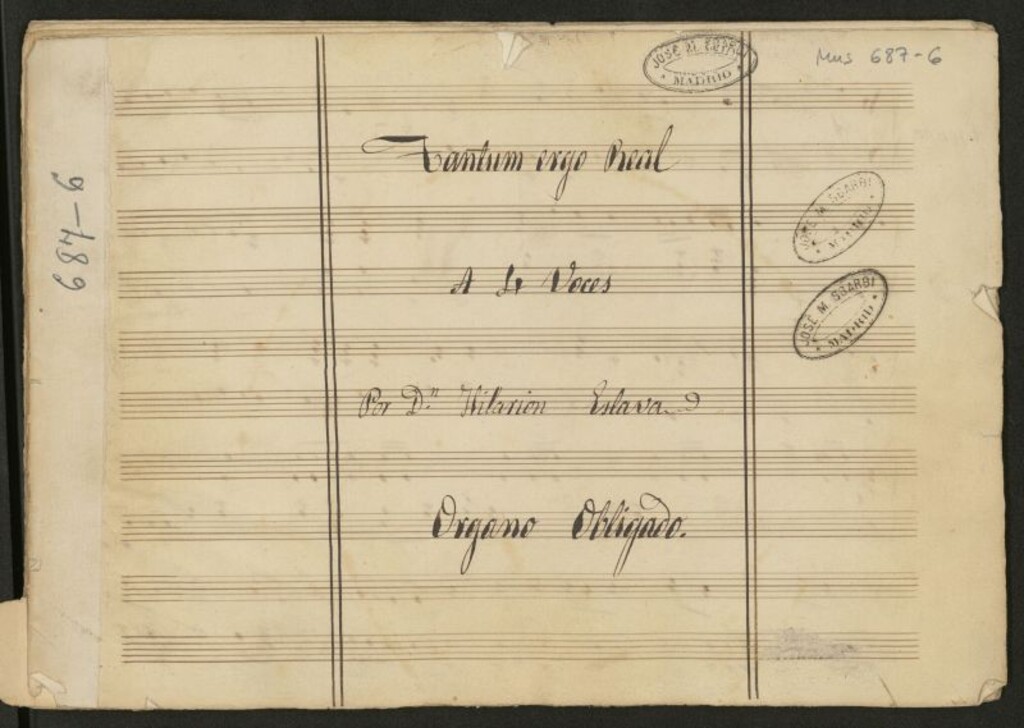 Mus 687-6
JOSÉ M. SBARBI
MADRID
Tantum ergo Real
JOSÉ M. SBARBI
MADRID
687-6
A 4 Voces
JOSÉ M. SBARBI
MADRID
Por D.n Hilarion Eslava
Organo Obligado.